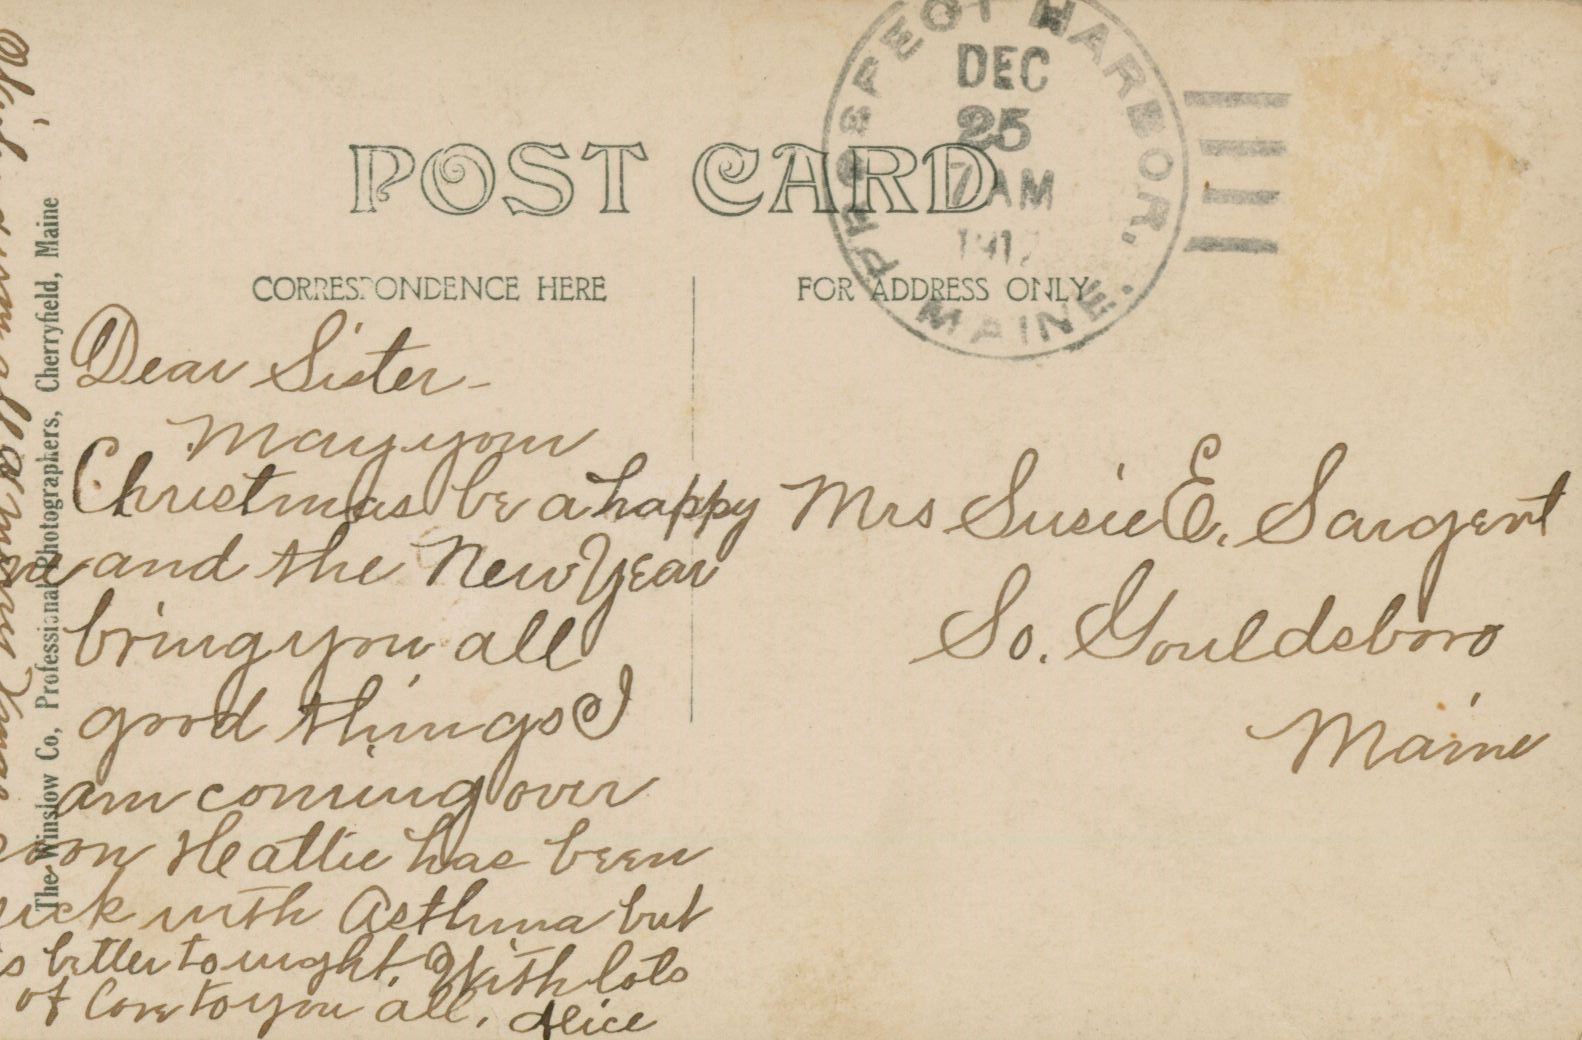 PROSPECT HARBOR,
MAINE.
DEC
25
7 AM
POST CARD
CORRESPONDENCE HERE
FOR ADDRESS ONLY
Dear Sister-
May your
Christmas be a happy
one and the New Year
bring you all
good things I
am coming over
soon Heattie has been
sick with Asthma but
is better to night. With lots
of Love to you all. Alice
Mrs Susie E. Sargent
So. Gouldsboro
Maine
The Winslow Co, Professional Photographers, Cherryfield, Maine